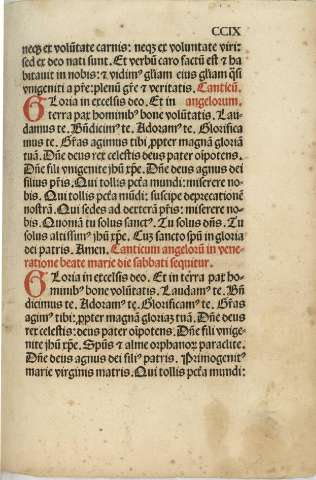 CCIX
neqꝫ ex volūtate carnis: neqꝫ ex voluntate viri:
sed ex deo nati sunt. Et verbū caro factū est ⁊ ha
bitauit in nobis: ⁊ vidimꝰ gl̄iam eiꝰ gl̄iam q̄si
vnigeniti a pr̄e: plenū gr̄e ⁊ veritatis. Canticū.
GLoria in excelsis deo. Et in angelorum.
terra pax hominibꝰ bone volūtatis. Lau
damus te. Bn̄dicimꝰ te. Adoramꝰ te. Glorifica
mus te. Gr̄as agimus tibi ꝓpter magnā gloriā
tuā. Dn̄e deus rex celestis deus pater oīpotens.
Dn̄e fili vnigenite jhū xp̄e. Dn̄e deus agnus dei
filius pr̄is. Qui tollis pctā mundi: miserere no-
bis. Qui tollis pctā mūdi: suscipe deprecationē
nostrā. Qui sedes ad dexterā pr̄is: miserere no-
bis. Quoniā tu solus sanctꝰ. Tu solus dn̄s. Tu
solus altissimꝰ jhū xp̄e. Cuꝫ sancto spū in gloria
dei patris. Amen. Canticum angelorū in vene-
ratione beate marie die sabbati sequitur.
GLoria in excelsis deo. Et in terra pax ho-
minibꝰ bone volūtatis. Laudamꝰ te. Bn̄
dicimus te. Adoramꝰ te. Glorificamꝰ te. Gr̄as
agimꝰ tibi: ꝓpter magnā gloriaꝫ tuā. Dn̄e deus
rex celestis: deus pater oīpotens. Dn̄e fili vnige-
nite jhū xp̄e. Spūs ⁊ alme orphanoꝝ paraclite.
Dn̄e deus agnus dei filiꝰ patris. Primogenitꝰ
marie virginis matris. Qui tollis pctā mundi: